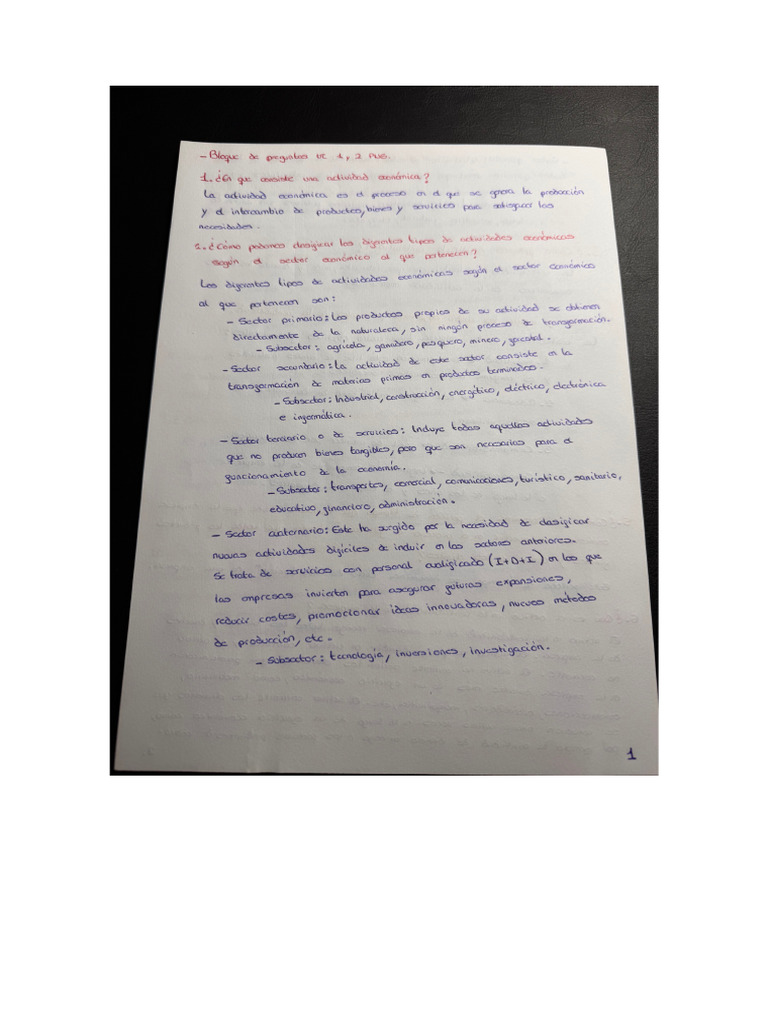 - Bloque de preguntas UT 1 y 2
1. ¿En que consiste una actividad económica?
La actividad económica es el proceso en el que se genera la producción
y el intercambio de productos, bienes y servicios para satisfacer las
necesidades.
2. ¿Cómo podemos clasificar los diferentes tipos de actividades económicas
según el sector económico al que pertenecen?
Los diferentes tipos de actividades económicas según el sector económico
al que pertenecen son:
- Sector primario: Los productos propios de su actividad se obtienen
directamente de la naturaleza, sin ningún proceso de transformación.
- Subsector: agrícola, ganadero, pesquero, minero, forestal.
- Sector secundario: La actividad de este sector consiste en la
transformación de materias primas en productos terminados.
- Subsector: Industrial, construcción, energético, eléctrico, electrónica
e informática.
- Sector terciario o de servicios: Incluye todas aquellas actividades
que no producen bienes tangibles, pero que son necesarias para el
funcionamiento de la economía.
- Subsector: transportes, comercial, comunicaciones, turístico, sanitario,
educativo, financiero, administración.
- Sector cuaternario: Este ha surgido por la necesidad de clasificar
nuevas actividades difíciles de incluir en los sectores anteriores.
Se trata de servicios con personal cualificado (I+D+I) en los que
las empresas invierten para asegurar futuras expansiones,
reducir costes, promocionar ideas innovadoras, nuevos métodos
de producción, etc.
- Subsector: tecnología, inversiones, investigación.
1